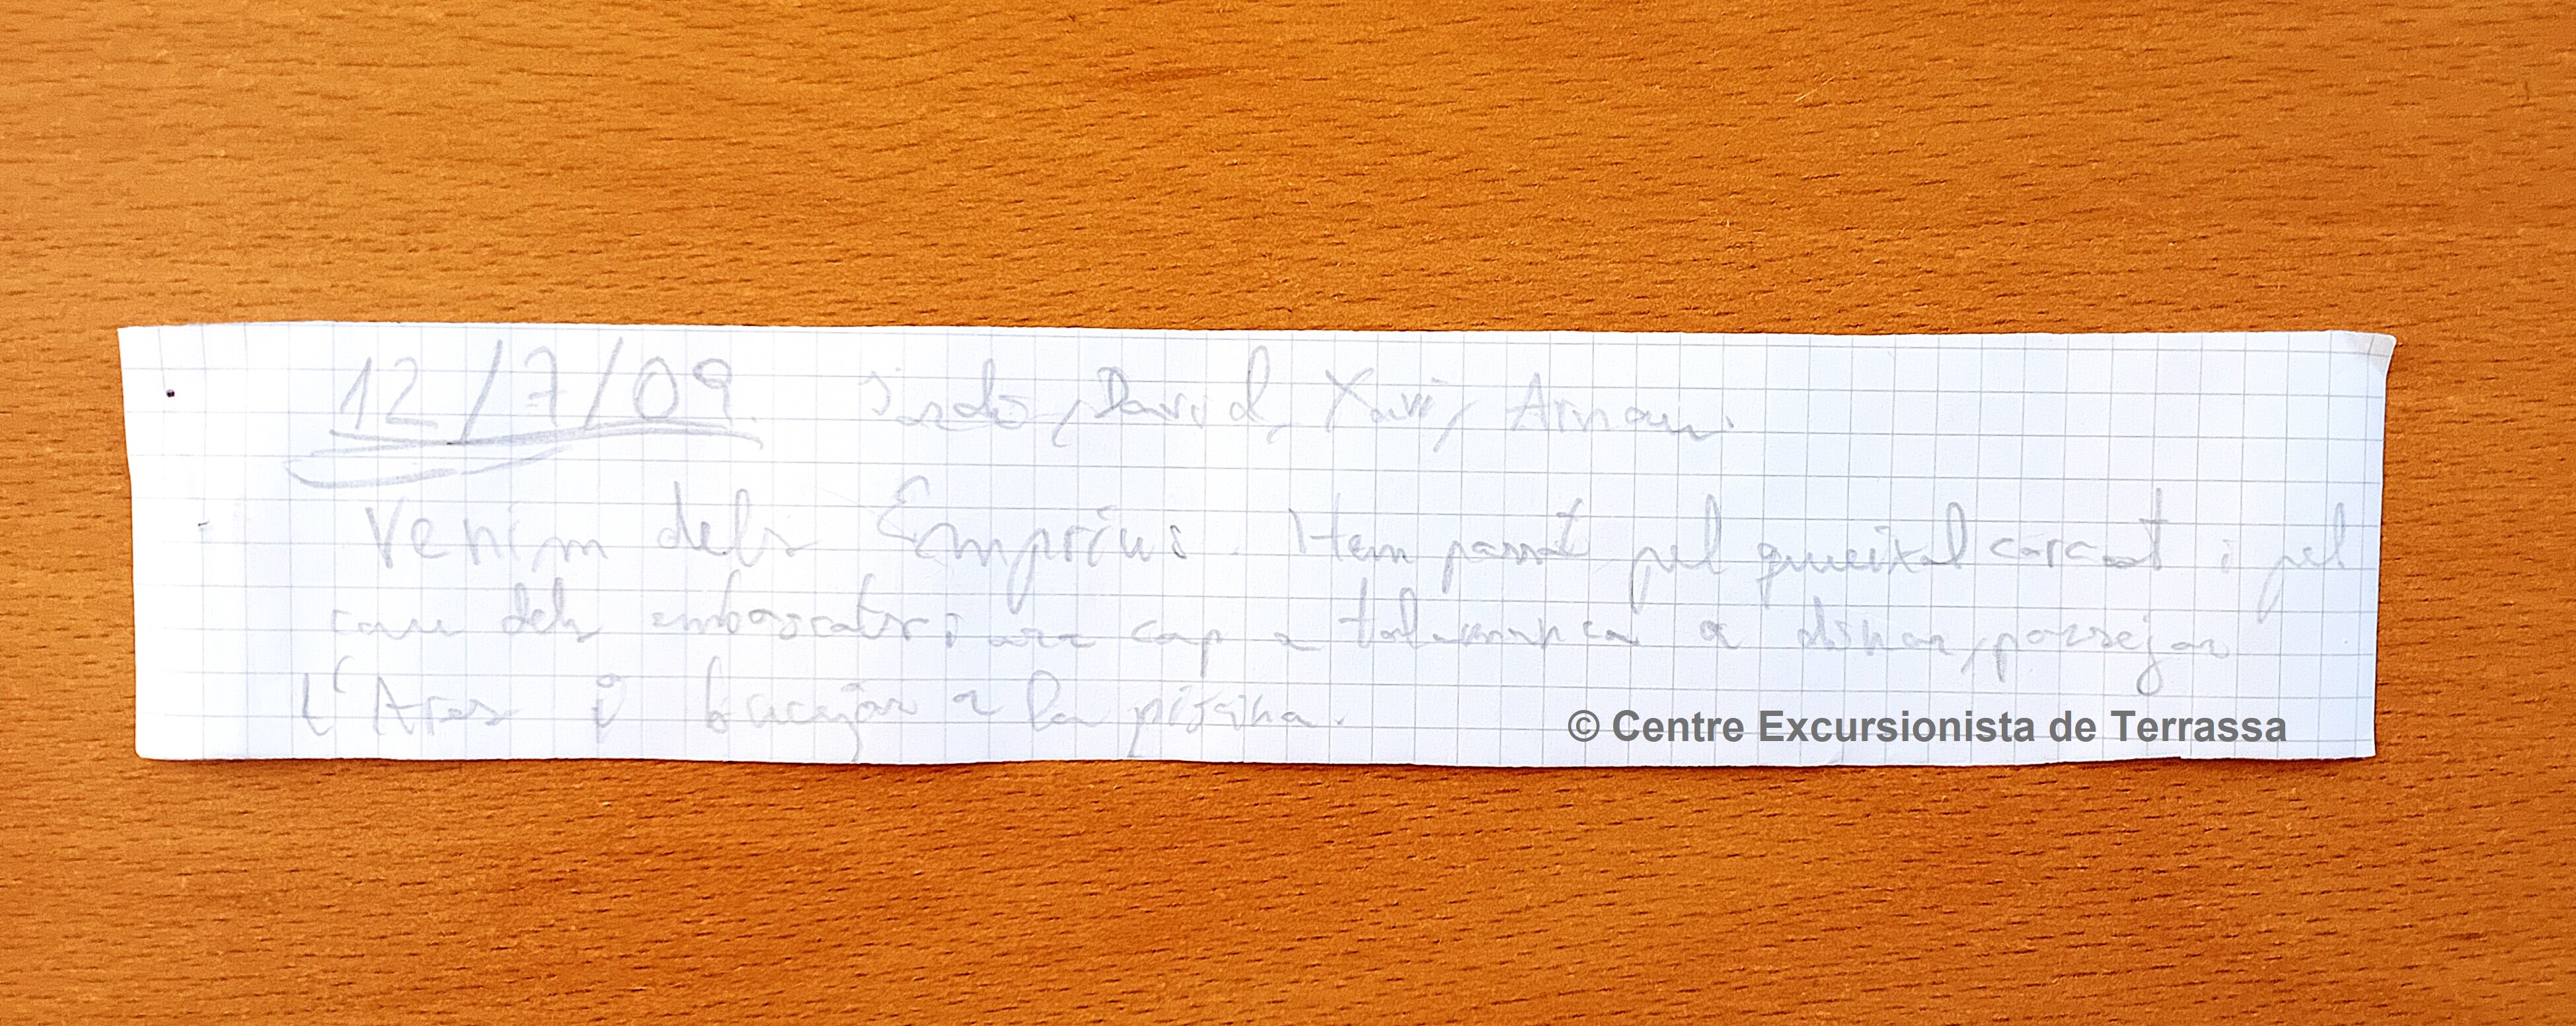 12/7/09 Jordi, David, Xavi, Arnau.
Venim dels Emprius. Hem passat pel queixal corcat i pel
cau dels emboscats i ara cap a talamanca a dinar, passejar
l'Ares i bucejar a la piscina.
© Centre Excursionista de Terrassa